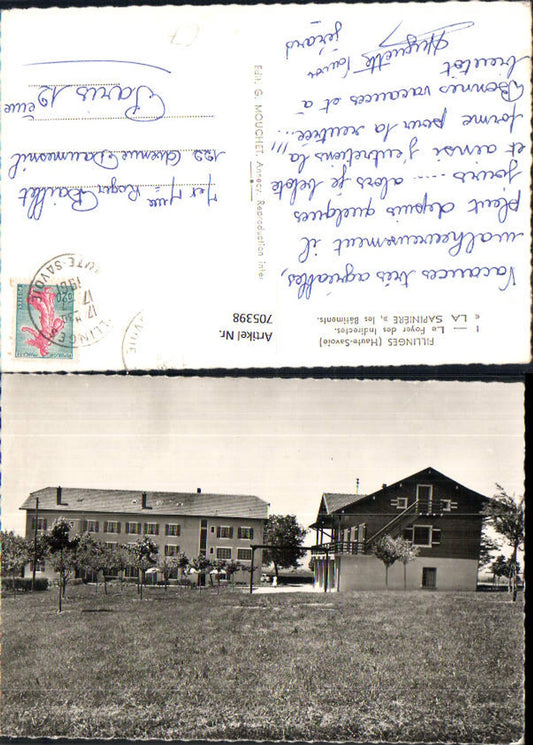 FILLINGES (Haute-Savoie)
1 — Le Foyer des Indirectes.
« LA SAPINIÈRE », les Bâtiments.
Vacances très agréables,
malheureusement il
pleut depuis quelques
jours .... alors je belote
et ainsi j'entretiens la
forme pour la rentrée... !!!
Bonnes vacances et à
bientôt
Huguette
gérard
Edit. G. MOUCHET, Annecy. Reproduction inter
Mr et Mme Roger Baillet
122 Avenue Daumesnil
Paris 12
ème
HAUTE SAVOIE
FILLINGES
17
Artikel Nr.
705398